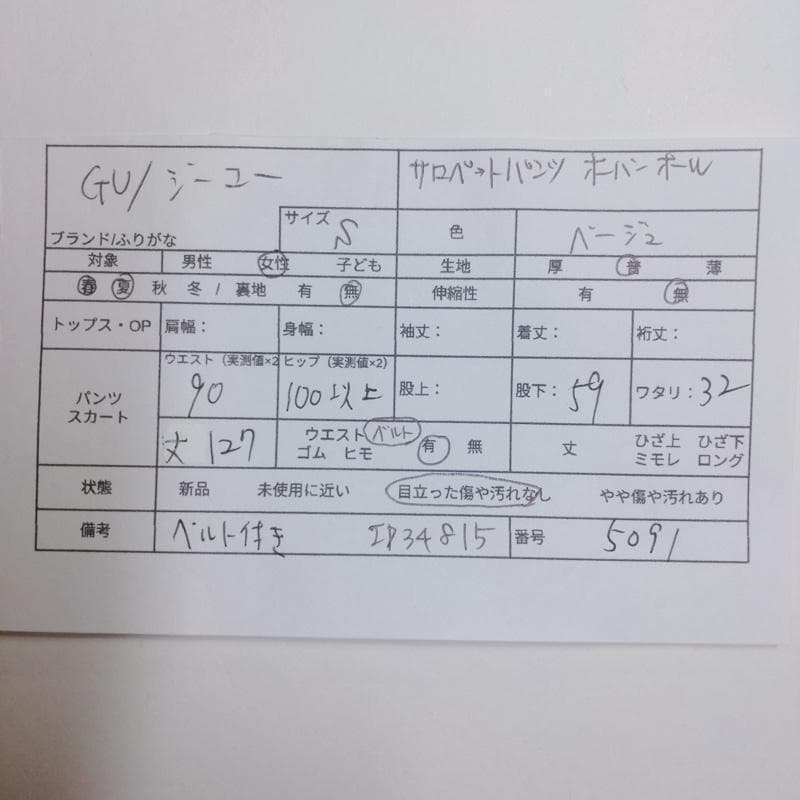 GU/ジーユー サロペットパンツ オーバーオール
ブランド/ふりがな サイズ S 色 ベージュ
対象 男性 女性 子ども 生地 厚 普 薄
春 夏 秋 冬 / 裏地 有 無 伸縮性 有 無
トップス・OP 肩幅: 身幅: 袖丈: 着丈: 裄丈:
パンツ スカート ウエスト (実測値×2 90 ヒップ (実測値×2) 100以上 股上: 股下: 59 ワタリ: 32
丈 127 ウエスト ベルト 有 無 丈 ひざ上 ひざ下
ゴム ヒモ ミモレ ロング
状態 新品 未使用に近い 目立った傷や汚れなし やや傷や汚れあり
備考 ベルト付き 34815 番号 5091